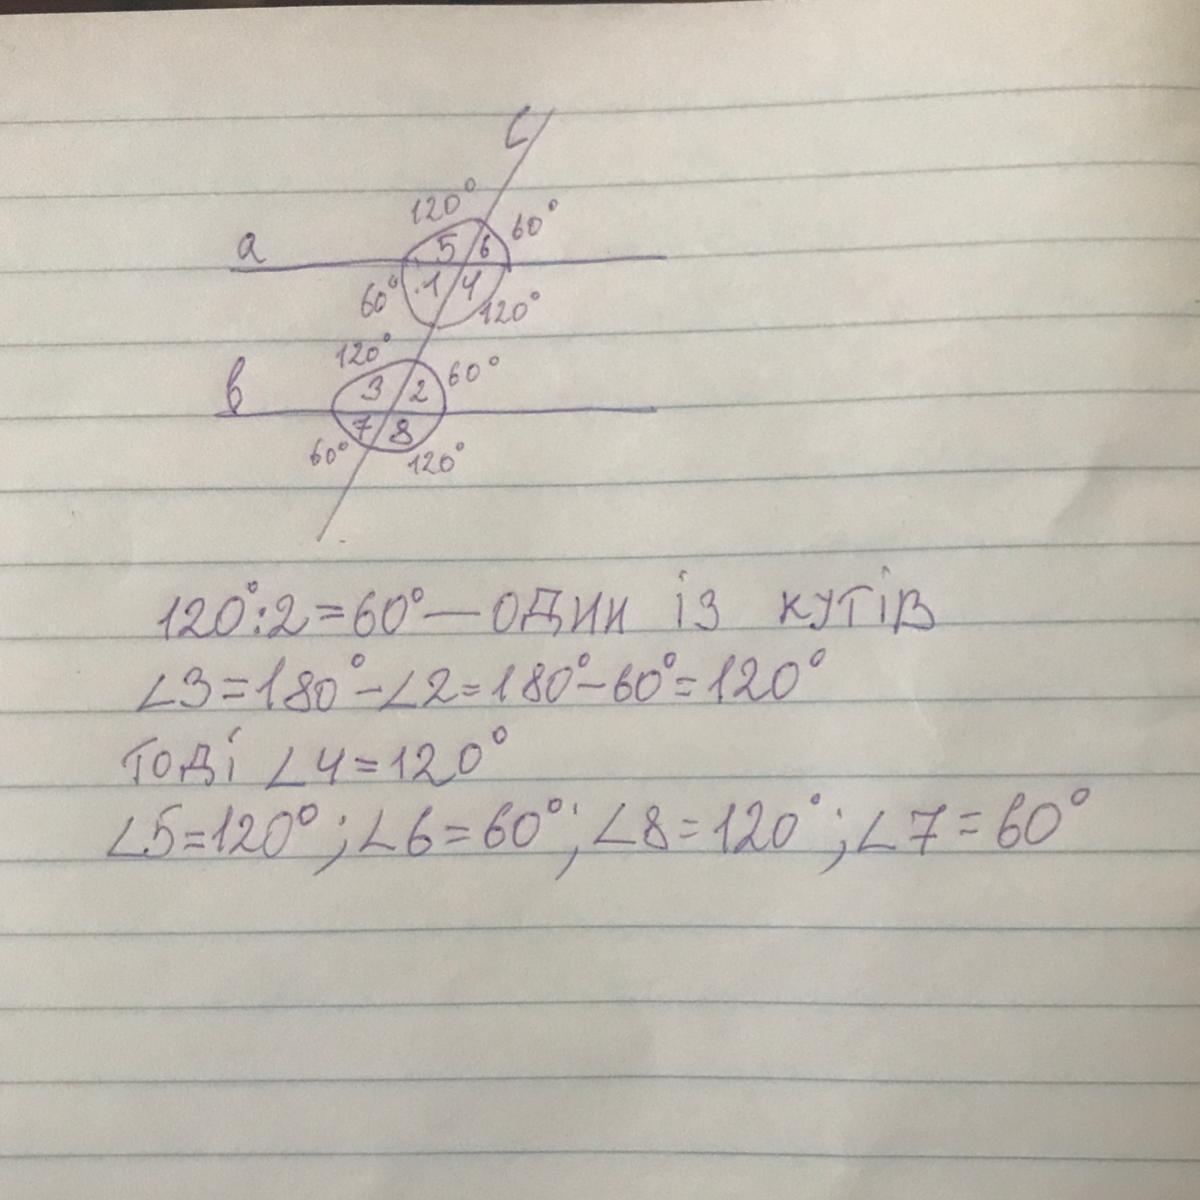 c
120° 60°
a 5 6
60° 1 4 120°
120° 60°
в 3 2
7 8
60° 120°
120°:2=60°—один із кутів
∠3=180°-∠2=180°-60°=120°
тоді ∠4=120°
∠5=120°;∠6=60°;∠8=120°;∠7=60°